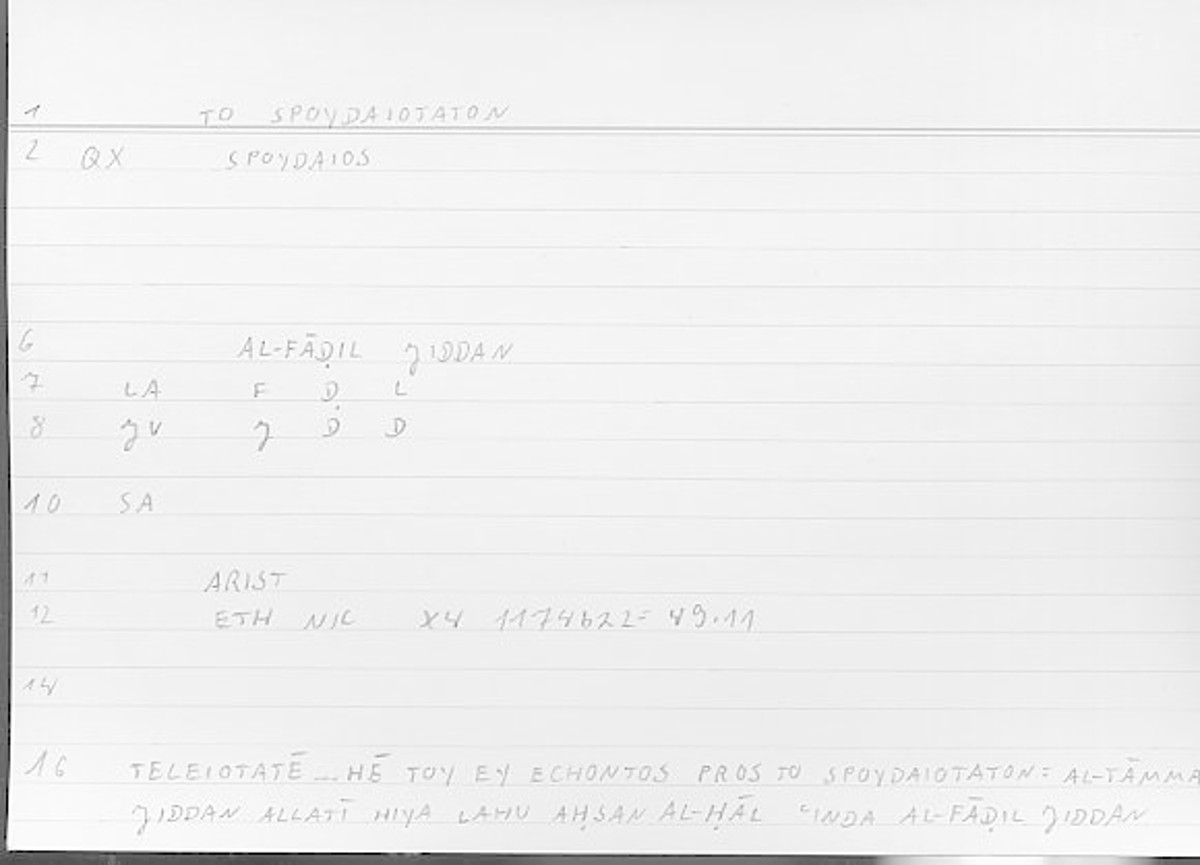 1 TO SPOYDAIOTATON
2 QX SPOYDAIOS
6 AL-FĀḌIL JIDDAN
7 LA F Ḍ L
8 JU J D D
10 SA
11 ARIST
12 ETH NIC X4 1174b22= 49.11
14
16 TELEIOTATĒ...HĒ TOY EY ECHONTOS PROS TO SPOYDAIOTATON= AL-TĀMMA
JIDDAN ALLATĪ HIYA LAHU AḤSAN AL-ḤĀL ʿINDA AL-FĀḌIL JIDDAN